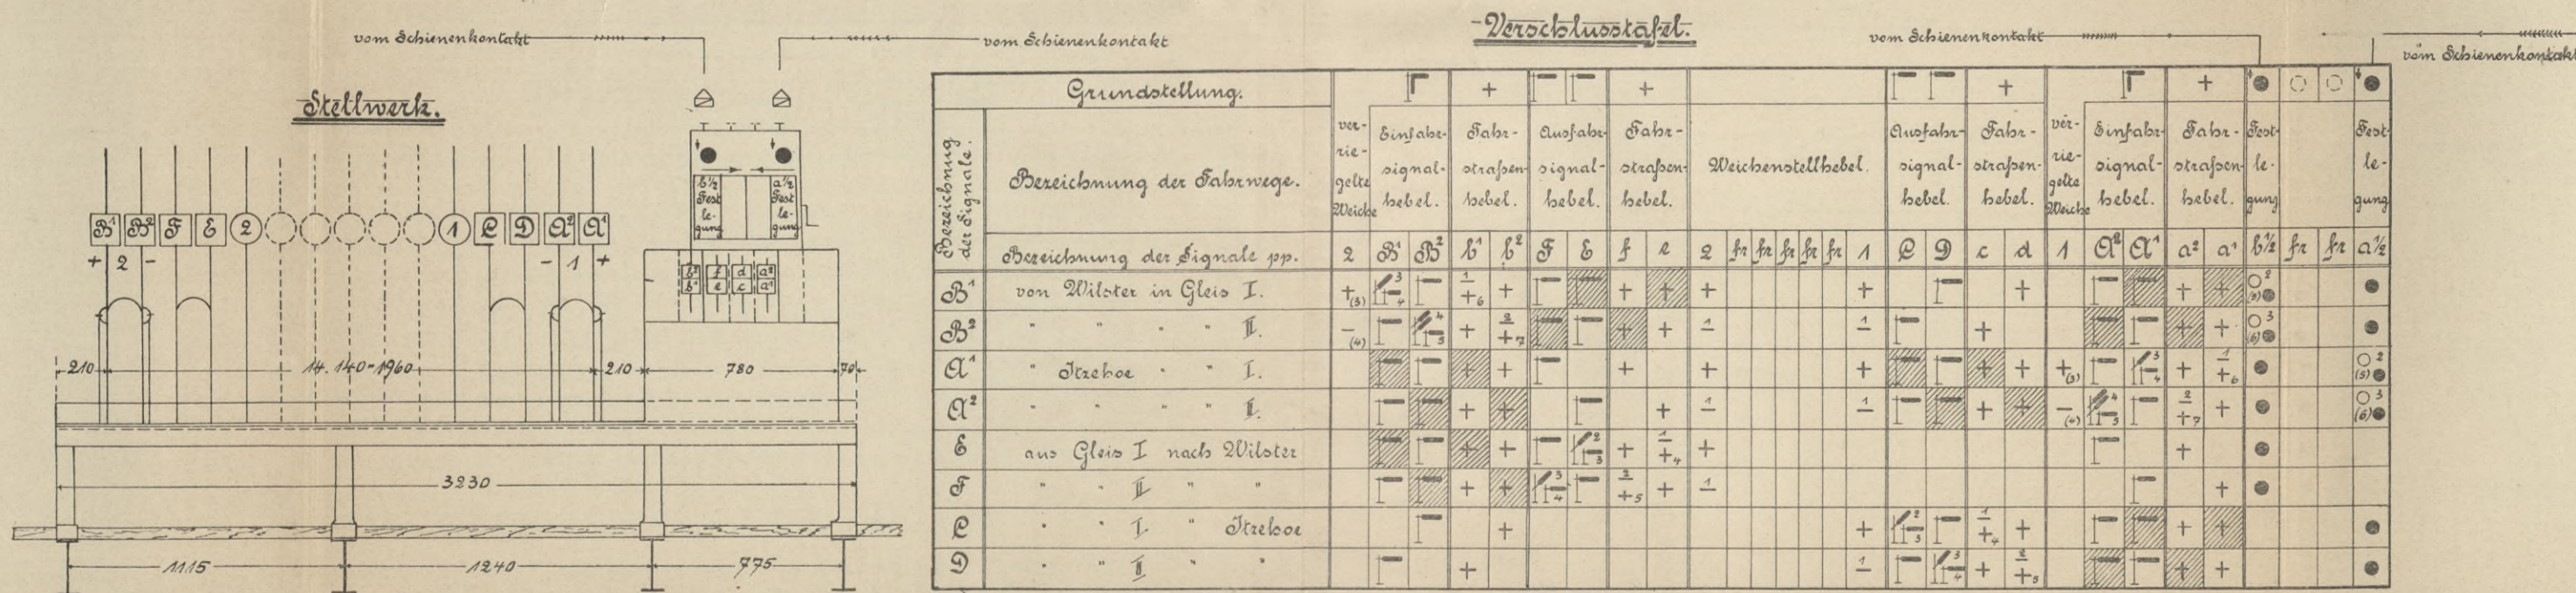 vom Schienenkontakt
vom Schienenkontakt
Stellwerk.
b½ a½
Fest Fest
le- le-
gung gung
B¹ B² F E 2 1 C D A² A¹
+ 2 - - 1 +
b² f d a²
b¹ e c a¹
210 14.140=1960 210 780 70
3230
1115 1240 775
Verschlusstafel.
vom Schienenkontakt
vom Schienenkontakt
Grundstellung. + + + +
Bezeichnung der Signale.
Bezeichnung der Fahrwege.
ver-
rie-
gelte
Weiche
Einfahr-
signal-
hebel.
Fahr-
straßen-
hebel.
Ausfahr-
signal-
hebel.
Fahr-
straßen-
hebel.
Weichenstellhebel.
Ausfahr-
signal-
hebel.
Fahr-
straßen-
hebel.
ver-
rie-
gelte
Weiche
Einfahr-
signal-
hebel.
Fahr-
straßen-
hebel.
Fest-
le-
gung
Fest-
le-
gung
Bezeichnung der Signale pp. 2 B¹ B² b¹ b² F E f e 2 fr fr fr fr fr 1 C D c d 1 A² A¹ a² a¹ b½ fr fr a½
B¹ von Wilster in Gleis I.
B² " " " " II.
A¹ " Itzehoe " " I.
A² " " " " II.
E aus Gleis I nach Wilster
F " " II " "
C " " I. " Itzehoe
D " " II " "